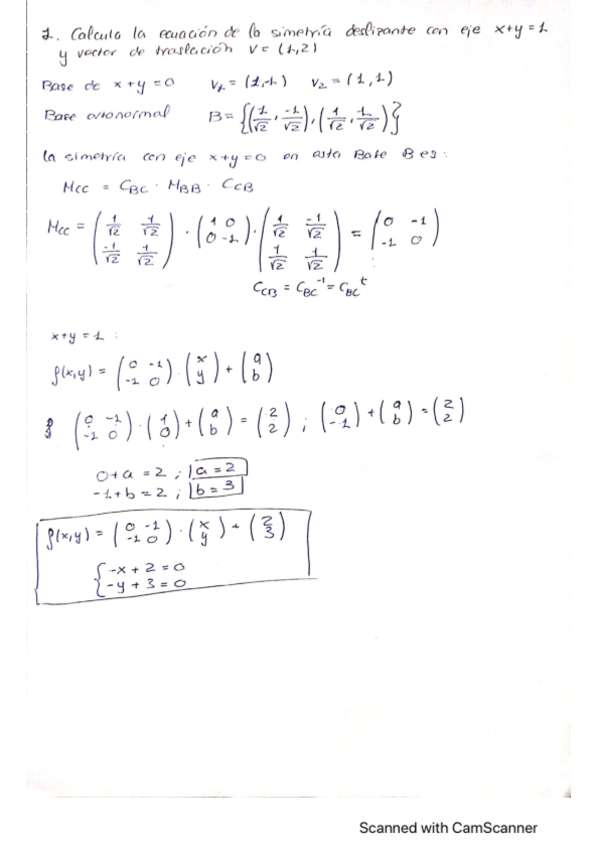 1. Calcula la ecuación de la simetría deslizante con eje x+y=1
y vector de traslación v=(1,2)
Base de x+y=0 v₁=(1,-1) v₂=(1,1)
Base ortonormal B={(1/√2, -1/√2), (1/√2, 1/√2)}
la simetría con eje x+y=0 en esta Base B es:
Mcc = C_BC · M_BB · C_CB
Mcc = (1/√2 1/√2; -1/√2 1/√2) · (1 0; 0 -1) · (1/√2 -1/√2; 1/√2 1/√2) = (0 -1; -1 0)
C_CB = C_BC⁻¹ = C_BC^t
x+y=1:
f(x,y) = (0 -1; -1 0) · (x; y) + (a; b)
(0 -1; -1 0) · (1; 0) + (a; b) = (2; 2) ; (0; -1) + (a; b) = (2; 2)
0+a=2 ; a=2
-1+b=2 ; b=3
f(x,y) = (0 -1; -1 0) · (x; y) + (2; 3)
{-x+2=0
-y+3=0
Scanned with CamScanner